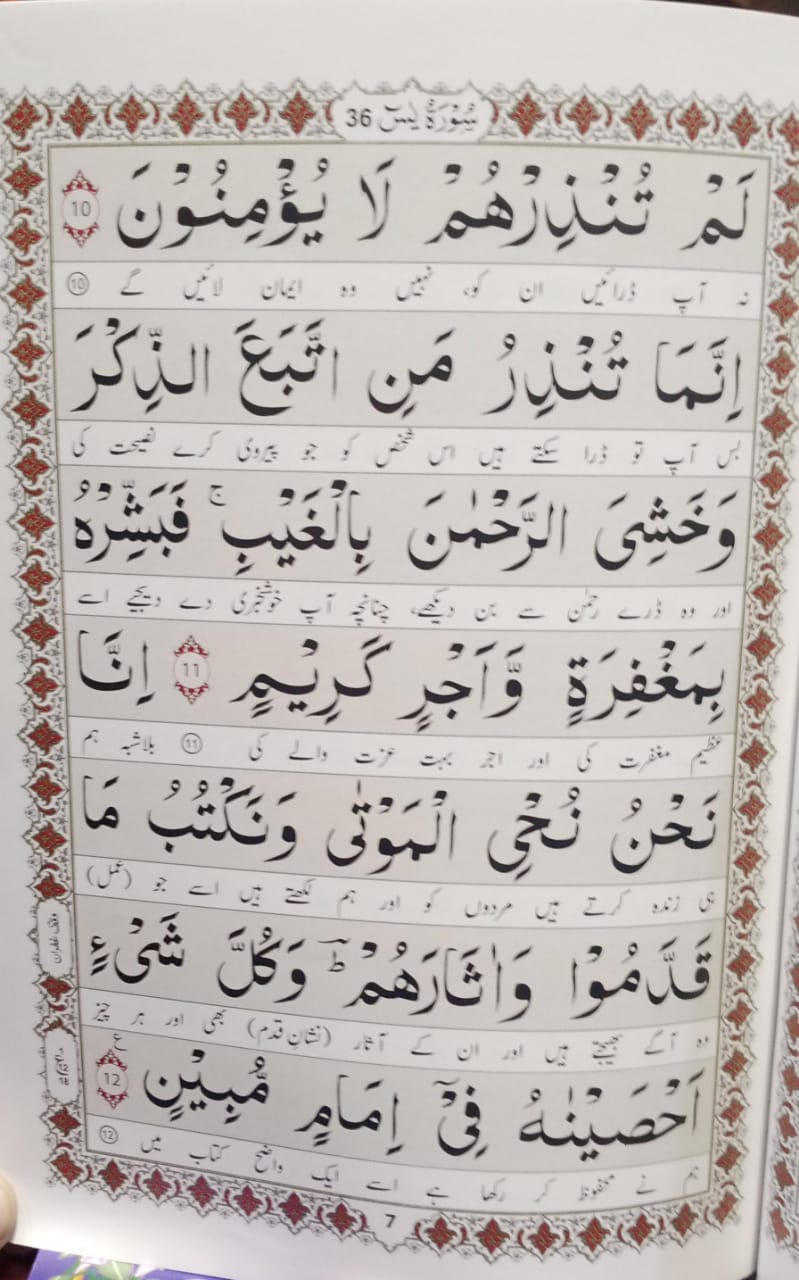 سُوْرَةُ يٰسٓ 36
لَمْ تُنْذِرْهُمْ لَا يُؤْمِنُوْنَ 10
نہ آپ ڈرائیں ان کو، نہیں وہ ایمان لائیں گے 10
اِنَّمَا تُنْذِرُ مَنِ اتَّبَعَ الذِّكْرَ
بس آپ تو ڈرا سکتے ہیں اس شخص کو جو پیروی کرے نصیحت کی
وَخَشِیَ الرَّحْمٰنَ بِالْغَیْبِ ۚ فَبَشِّرْهُ
اور وہ ڈرے رحمٰن سے بن دیکھے، چنانچہ آپ خوشخبری دے دیجیے اسے
بِمَغْفِرَةٍ وَّاَجْرٍ كَرِیْمٍ 11 اِنَّا
عظیم مغفرت کی اور اجر بہت عزت والے کی 11 بلاشبہ ہم
نَحْنُ نُحْیِ الْمَوْتٰی وَنَكْتُبُ مَا
ہی زندہ کرتے ہیں مردوں کو اور ہم لکھتے ہیں اسے جو (عمل)
قَدَّمُوْا وَاٰثَارَهُمْ ؕ وَكُلَّ شَیْءٍ
وہ آگے بھیجتے ہیں اور ان کے آثار (نشانِ قدم) بھی اور ہر چیز
وقف غفران
اَحْصَیْنٰهُ فِیْۤ اِمَامٍ مُّبِیْنٍ 12
ع
ہم نے محفوظ کر رکھا ہے اسے ایک واضح کتاب میں 12
7